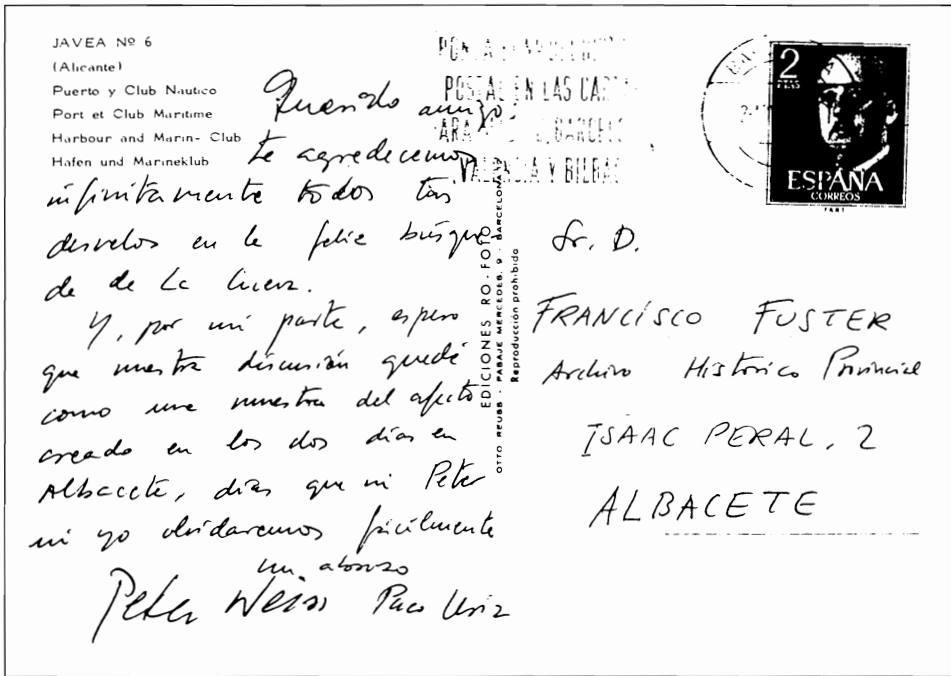 JAVEA Nº 6
(Alicante)
Puerto y Club Nautico
Port et Club Maritime
Harbour and Marin- Club
Hafen und Marineklub
Querido amigo:
te agradecemos
infinitamente todos tus
desvelos en la feliz búsque-
da de La Cueva.
Y, por mi parte, espero
que nuestra discusión quede
como una muestra del afecto
creado en los dos días en
Albacete, días que ni Peter
ni yo olvidaremos fácilmente
un abrazo
Peter Weiss Paco Uriz
EDICIONES RO-FOTO
OTTO REUSS - PASAJE MERCEDES, 9 - BARCELONA
Reproducción prohibida
POSTAL EN LAS
VALENCIA Y BILBAO
2
PTAS
ESPAÑA
CORREOS
Sr. D.
FRANCISCO FUSTER
Archivo Histórico Provincial
ISAAC PERAL, 2
ALBACETE